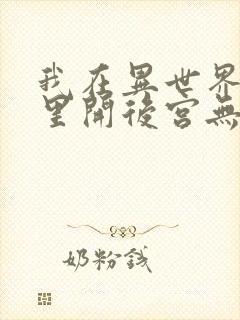 我在異世界
里開後宮無
奶粉錢